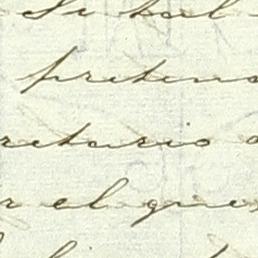 Si tal
preten
retario
r el que